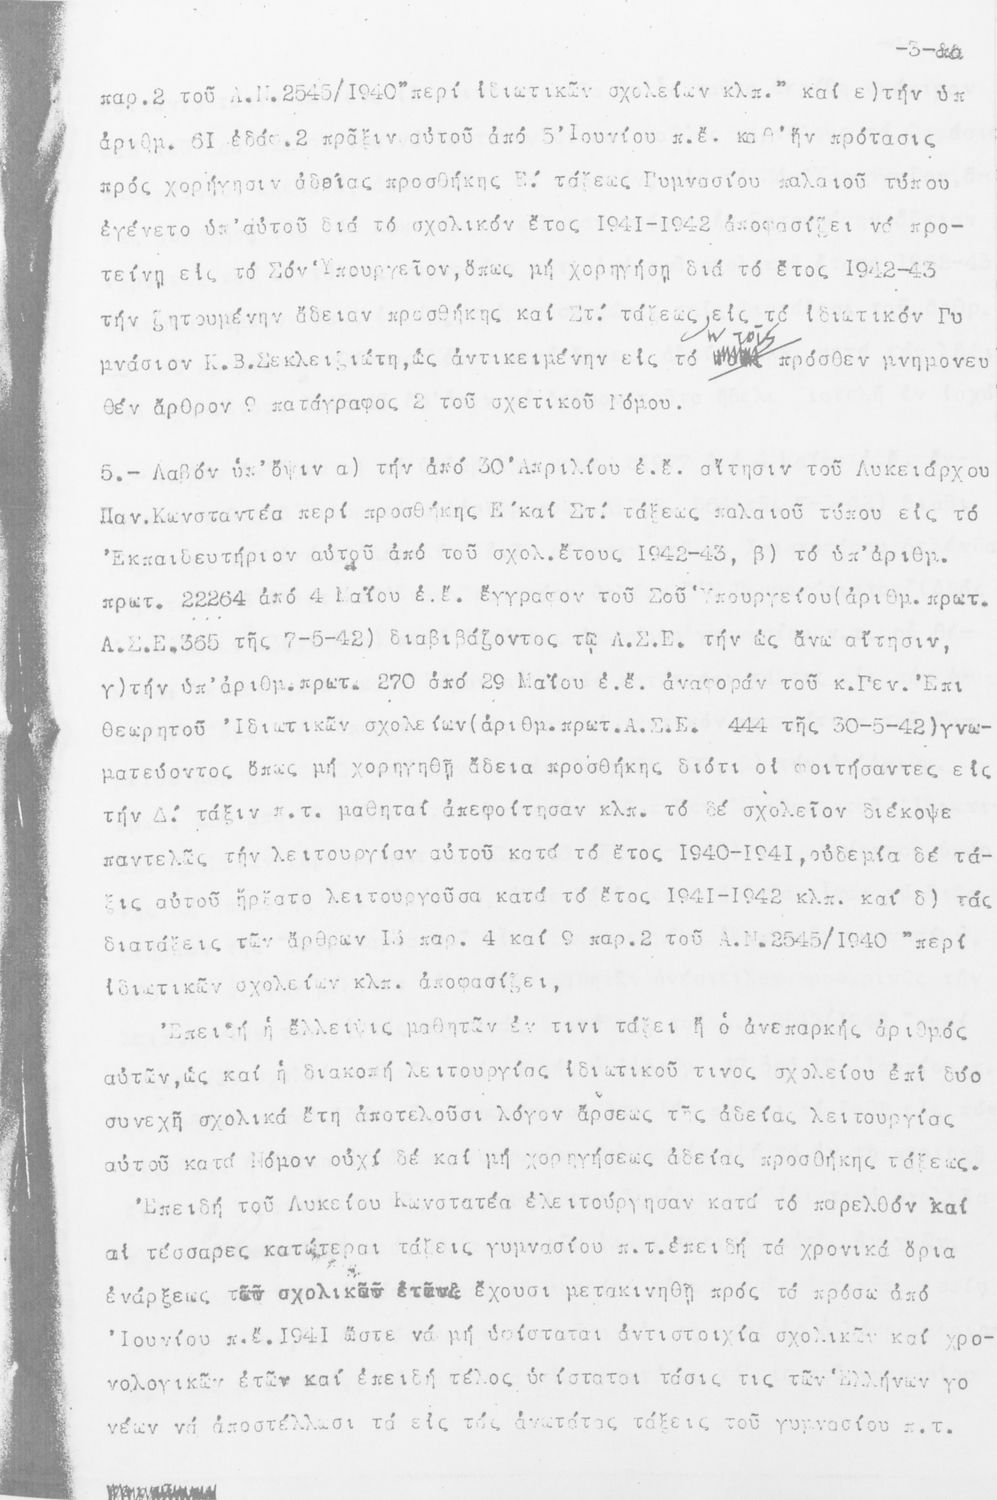 -3-
παρ.2 τοῦ Α.Ν.2545/1940"περί ἰδιωτικῶν σχολείων κλπ." καί ε)τήν ὑπ
ἀριθμ. 61 ἐδάφ.2 πρᾶξιν αὐτοῦ ἀπό 5 'Ιουνίου π.ἔ. καθ'ἥν πρότασις
πρός χορήγησιν ἀδείας προσθήκης Ε.' τάξεως Γυμνασίου παλαιοῦ τύπου
ἐγένετο ὑπ'αὐτοῦ διά τό σχολικόν ἔτος 1941-1942 ἀποφασίζει νά προ-
τείνῃ εἰς τό Σόν 'Υπουργεῖον,ὅπως μή χορηγήσῃ διά τό ἔτος 1942-43
τήν ζητουμένην ἄδειαν προσθήκης καί Στ.' τάξεως,εἰς τό ἰδιωτικόν Γυ
μνάσιον Κ.Β.Σεκλειζιώτη,ὡς ἀντικειμένην εἰς τό ἐν τοῖς πρόσθεν μνημονευ
θέν ἄρθρον 9 πατάγραφος 2 τοῦ σχετικοῦ Νόμου.
5.- Λαβόν ὑπ'ὄψιν α) τήν ἀπό 30 'Απριλίου ἐ.ἔ. αἴτησιν τοῦ Λυκειάρχου
Παν.Κωνσταντέα περί προσθήκης Ε 'καί Στ.' τάξεως παλαιοῦ τύπου εἰς τό
'Εκπαιδευτήριον αὐτοῦ ἀπό τοῦ σχολ.ἔτους 1942-43, β) τό ὑπ'ἀριθμ.
πρωτ. 22264 ἀπό 4 Μαΐου ἐ.ἔ. ἔγγραφον τοῦ Σοῦ 'Υπουργείου(ἀριθμ.πρωτ.
Α.Σ.Ε.365 τῆς 7-5-42) διαβιβάζοντος τῷ Α.Σ.Ε. τήν ὡς ἄνω αἴτησιν,
γ)τήν ὑπ'ἀριθμ.πρωτ. 270 ἀπό 29 Μαΐου ἐ.ἔ. ἀναφοράν τοῦ κ.Γεν.'Επι
θεωρητοῦ 'Ιδιωτικῶν σχολείων(ἀριθμ.πρωτ.Α.Σ.Ε. 444 τῆς 30-5-42)γνω-
ματεύοντος ὅπως μή χορηγηθῇ ἄδεια προσθήκης διότι οἱ φοιτήσαντες εἰς
τήν Δ.' τάξιν π.τ. μαθηταί ἀπεφοίτησαν κλπ. τό δέ σχολεῖον διέκοψε
παντελῶς τήν λειτουργίαν αὐτοῦ κατά τό ἔτος 1940-1941,οὐδεμία δέ τά-
ξις αὐτοῦ ἤρξατο λειτουργοῦσα κατά τό ἔτος 1941-1942 κλπ. καί δ) τάς
διατάξεις τῶν ἄρθρων 13 παρ. 4 καί 9 παρ.2 τοῦ Α.Ν.2545/1940 "περί
ἰδιωτικῶν σχολείων κλπ. ἀποφασίζει,
'Επειδή ἡ ἔλλειψις μαθητῶν ἐν τινι τάξει ἤ ὁ ἀνεπαρκής ἀριθμός
αὐτῶν,ὡς καί ἡ διακοπή λειτουργίας ἰδιωτικοῦ τινος σχολείου ἐπί δύο
συνεχῆ σχολικά ἔτη ἀποτελοῦσι λόγον ἄρσεως τῆς ἀδείας λειτουργίας
αὐτοῦ κατά Νόμον οὐχί δέ καί μή χορηγήσεως ἀδείας προσθήκης τάξεως.
'Επειδή τοῦ Λυκείου Κωνστατέα ἐλειτούργησαν κατά τό παρελθόν καί
αἱ τέσσαρες κατώτεραι τάξεις γυμνασίου π.τ.ἐπειδή τά χρονικά ὅρια
ἐνάρξεως τῶν σχολικῶν ἐτῶν ἔχουσι μετακινηθῆ πρός τό πρόσω ἀπό
'Ιουνίου π.ἔ.1941 ὥστε νά μή ὑφίσταται ἀντιστοιχία σχολικῶν καί χρο-
νολογικῶν ἐτῶν καί ἐπειδή τέλος ὑφίσταται τάσις τις τῶν 'Ελλήνων γο
νέων νά ἀποστέλλωσι τά εἰς τάς ἀνωτάτας τάξεις τοῦ γυμνασίου π.τ.